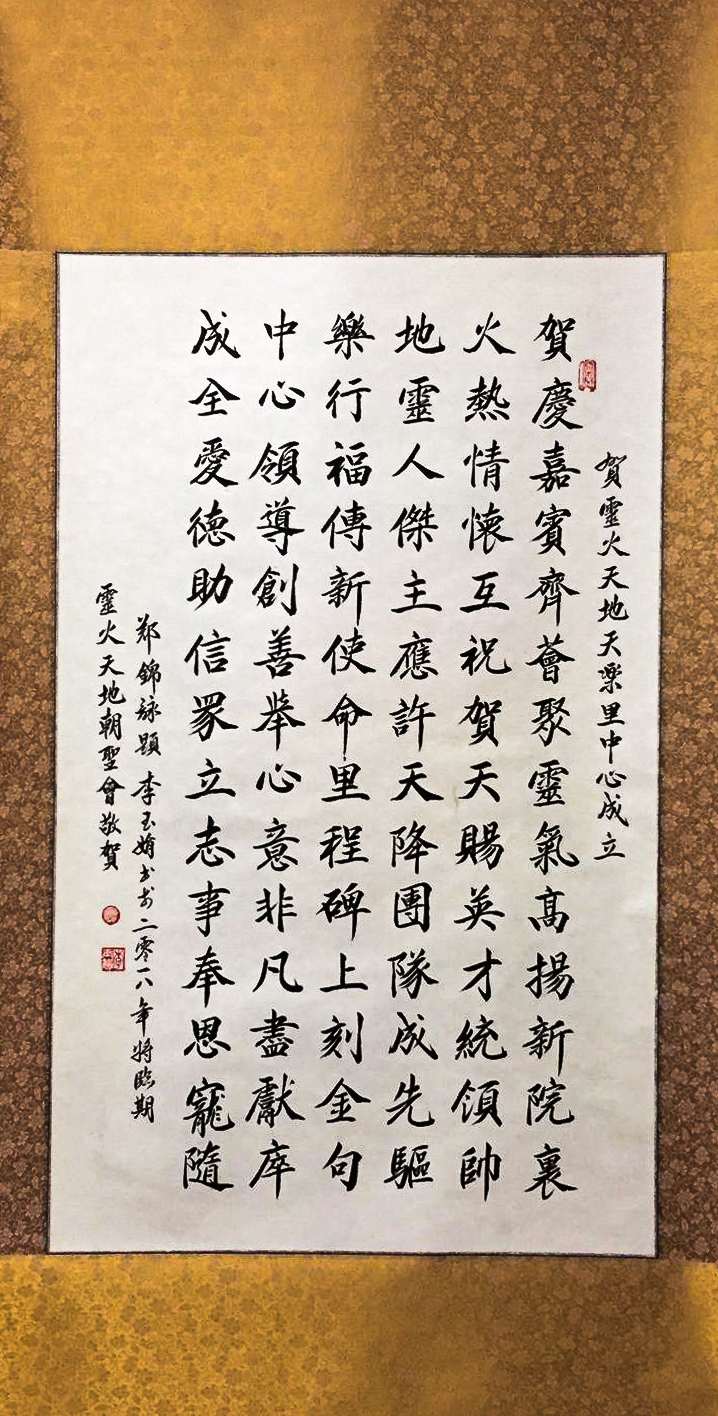 賀靈火天地天樂里中心成立
賀慶嘉賓齊薈聚靈氣高揚新院裏
火熱情懷互祝賀天賜英才統領帥
地靈人傑主應許天降團隊成先驅
樂行福傳新使命里程碑上刻金句
中心領導創善舉心意非凡盡獻庠
成全愛德助信眾立志事奉恩寵隨
鄭錦詠題 李玉娟書於二零一八年將臨期
靈火天地朝聖會敬賀